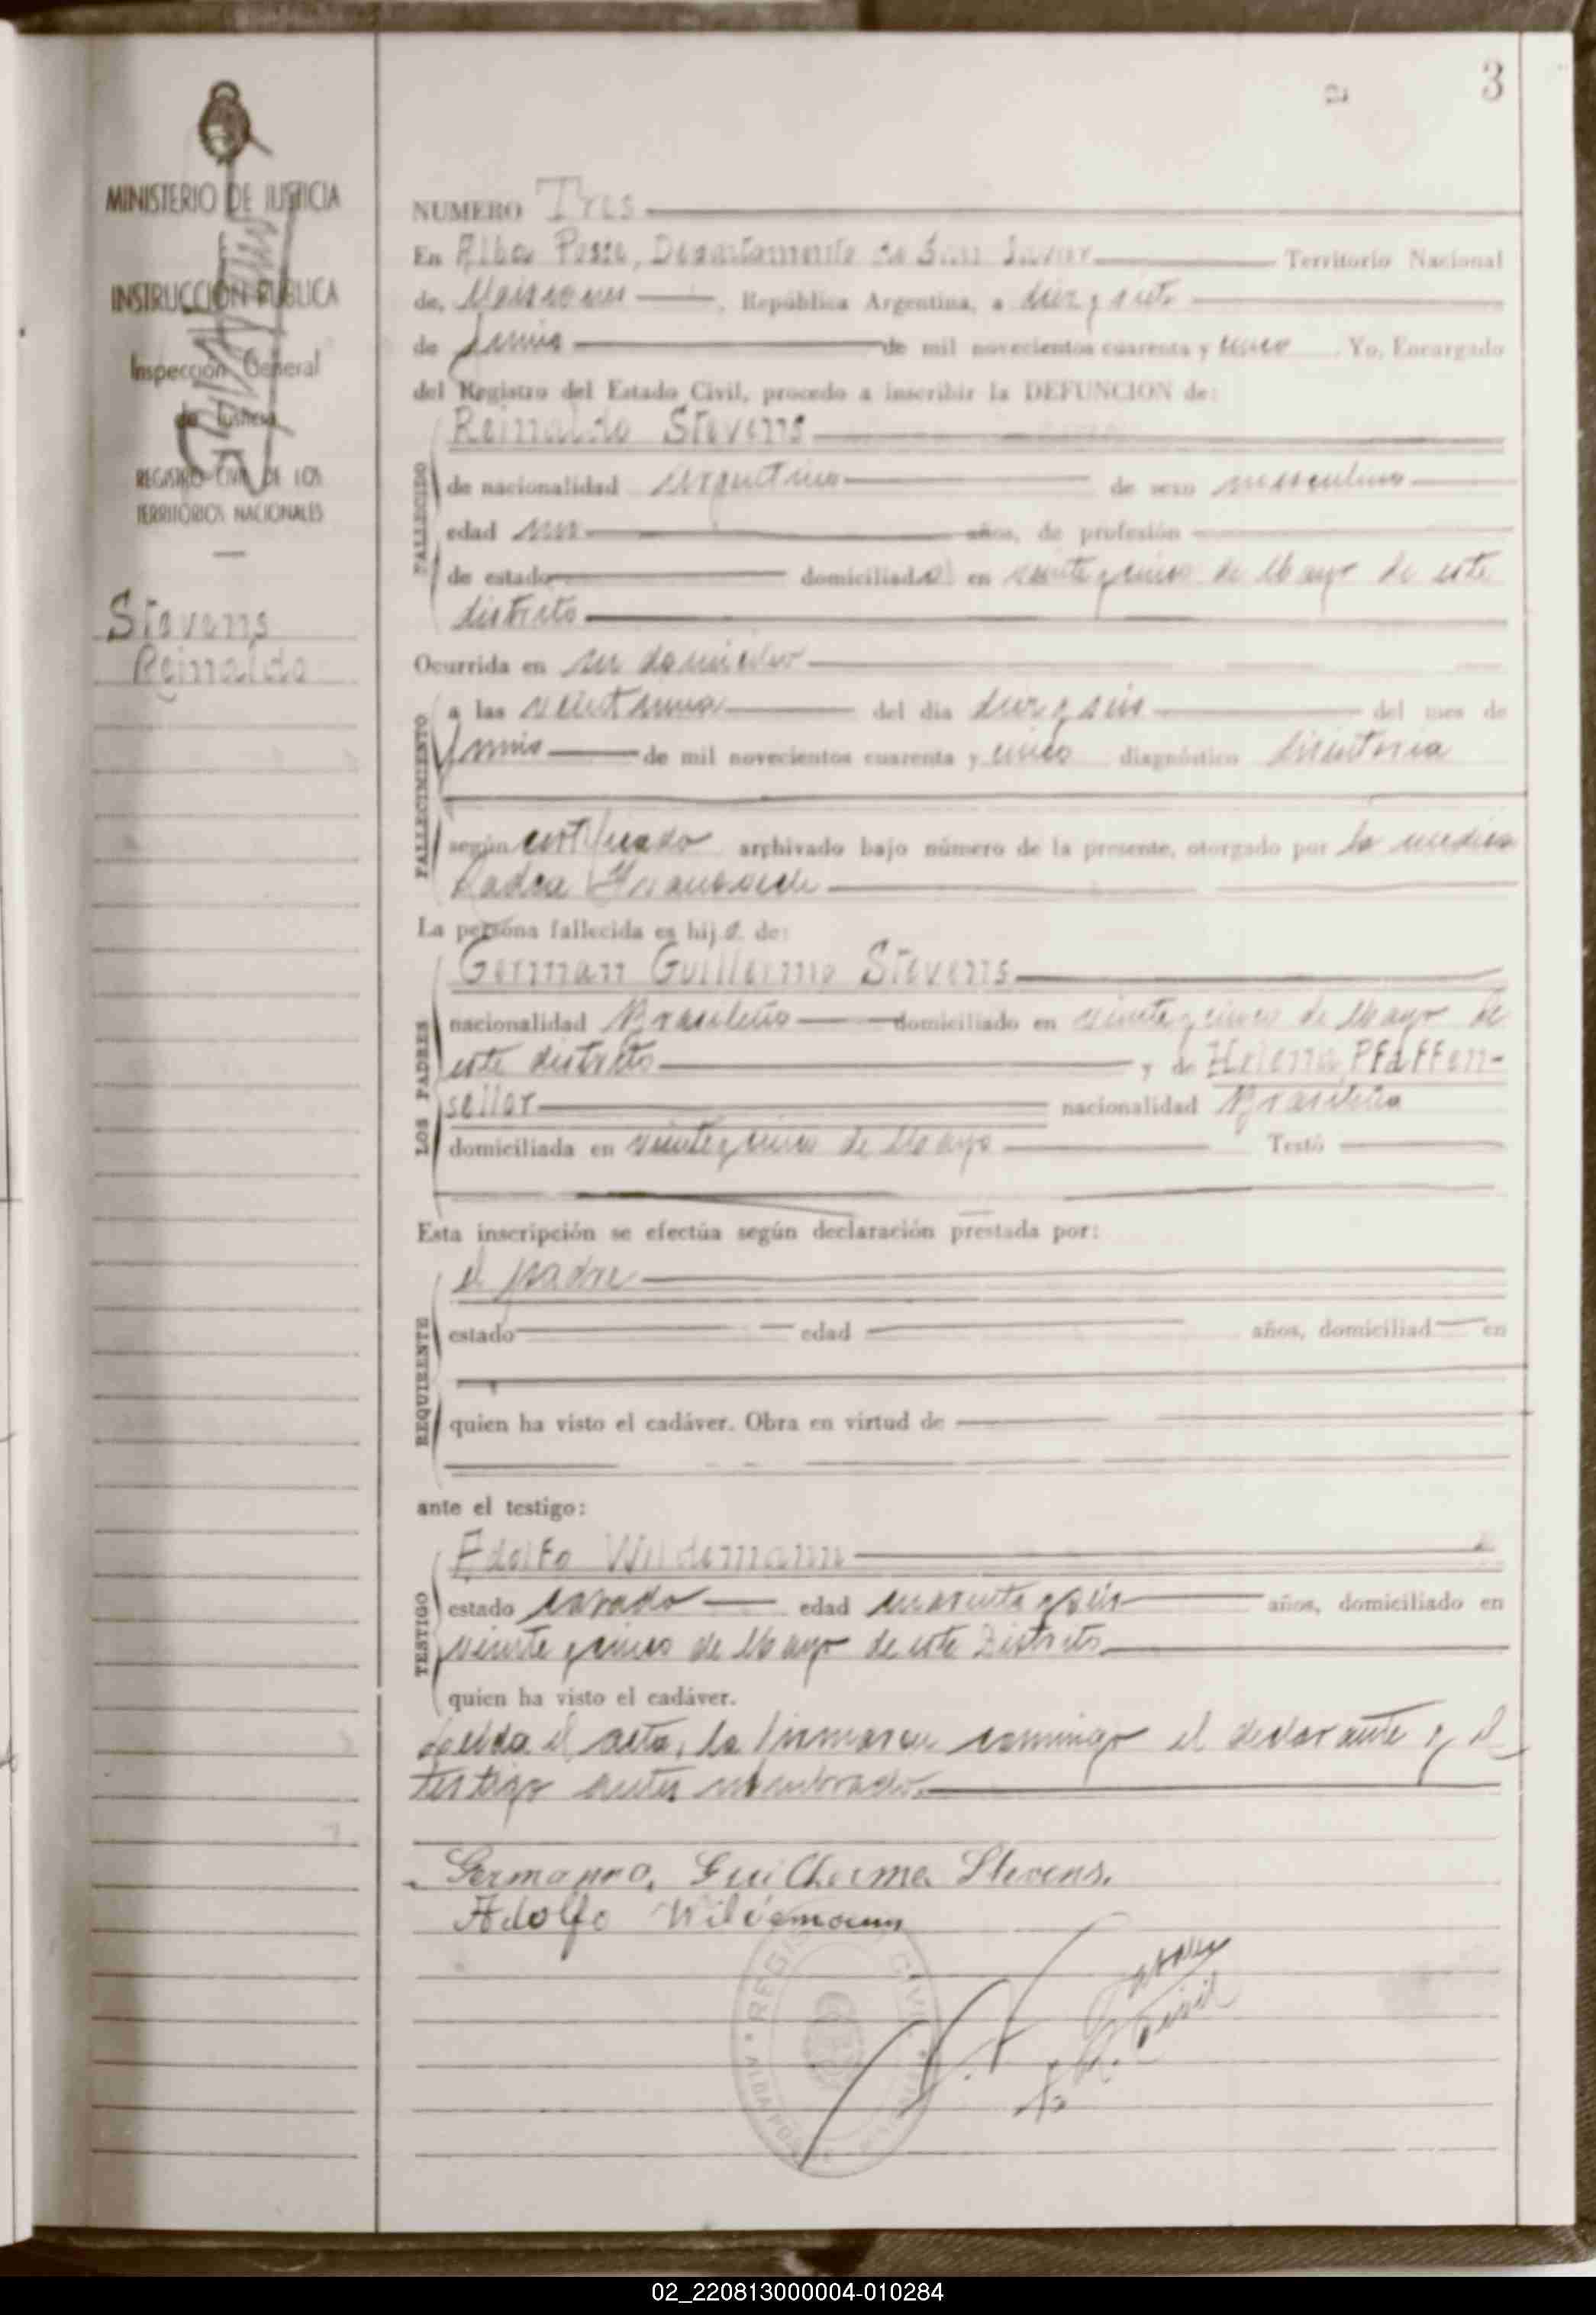 3
MINISTERIO DE JUSTICIA
INSTRUCCION PUBLICA
Inspección General
de Justicia
REGISTRO CIVIL DE LOS
TERRITORIOS NACIONALES
Stevens
Reinaldo
NUMERO Tres
En Alba Posse, Departamento de San Javier Territorio Nacional
de, Misiones, República Argentina, a diez y siete
de Junio de mil novecientos cuarenta y cinco. Yo, Encargado
del Registro del Estado Civil, procedo a inscribir la DEFUNCION de:
FALLECIDO
Reinaldo Stevens
de nacionalidad Argentino de sexo masculino
edad un años, de profesión
de estado domiciliado en veinte y cinco de Mayo de este
distrito
Ocurrida en su domicilio
FALLECIMIENTO
a las veintiuna del día diez y seis del mes de
Junio de mil novecientos cuarenta y cinco diagnóstico disenteria
según certificado archivado bajo número de la presente, otorgado por la medica
La persona fallecida es hijo de:
LOS PADRES
German Guillermo Stevens
nacionalidad Brasileño domiciliado en veinte y cinco de Mayo de
este distrito y de Helena Pfaffen-
seller nacionalidad Brasileña
domiciliada en veinte y cinco de Mayo Testó
Esta inscripción se efectúa según declaración prestada por:
REQUIRENTE
el padre
estado edad años, domiciliad en
quien ha visto el cadáver. Obra en virtud de
ante el testigo:
TESTIGO
Adolfo Wildemann
estado casado edad cuarenta y seis años, domiciliado en
veinte y cinco de Mayo de este Distrito
quien ha visto el cadáver.
Leida el acta, la firmaron conmigo el declarante y el
testigo antes nombrado.
Germanno, Guilherme Stevens.
Adolfo Wildemann
REGISTRO CIVIL
ALBA POSSE
02_220813000004-010284